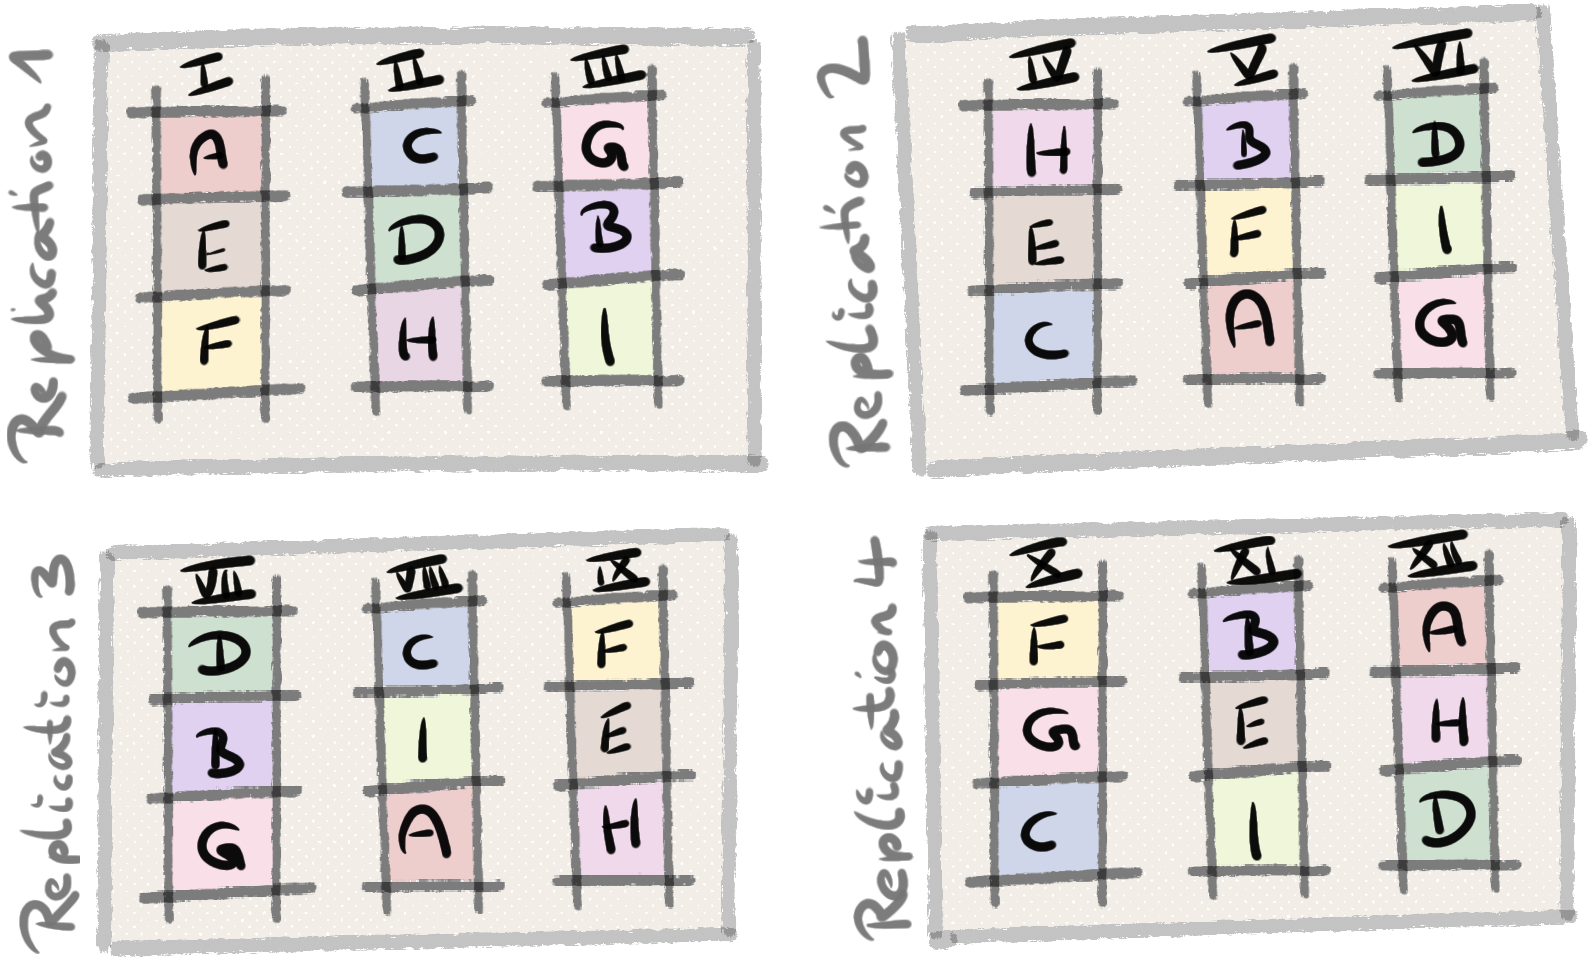 Replication 1
I II III
A C G
E D B
F H I
Replication 2
IV V VI
H B D
E F I
C A G
Replication 3
VII VIII IX
D C F
B I E
G A H
Replication 4
X XI XII
F B A
G E H
C I D